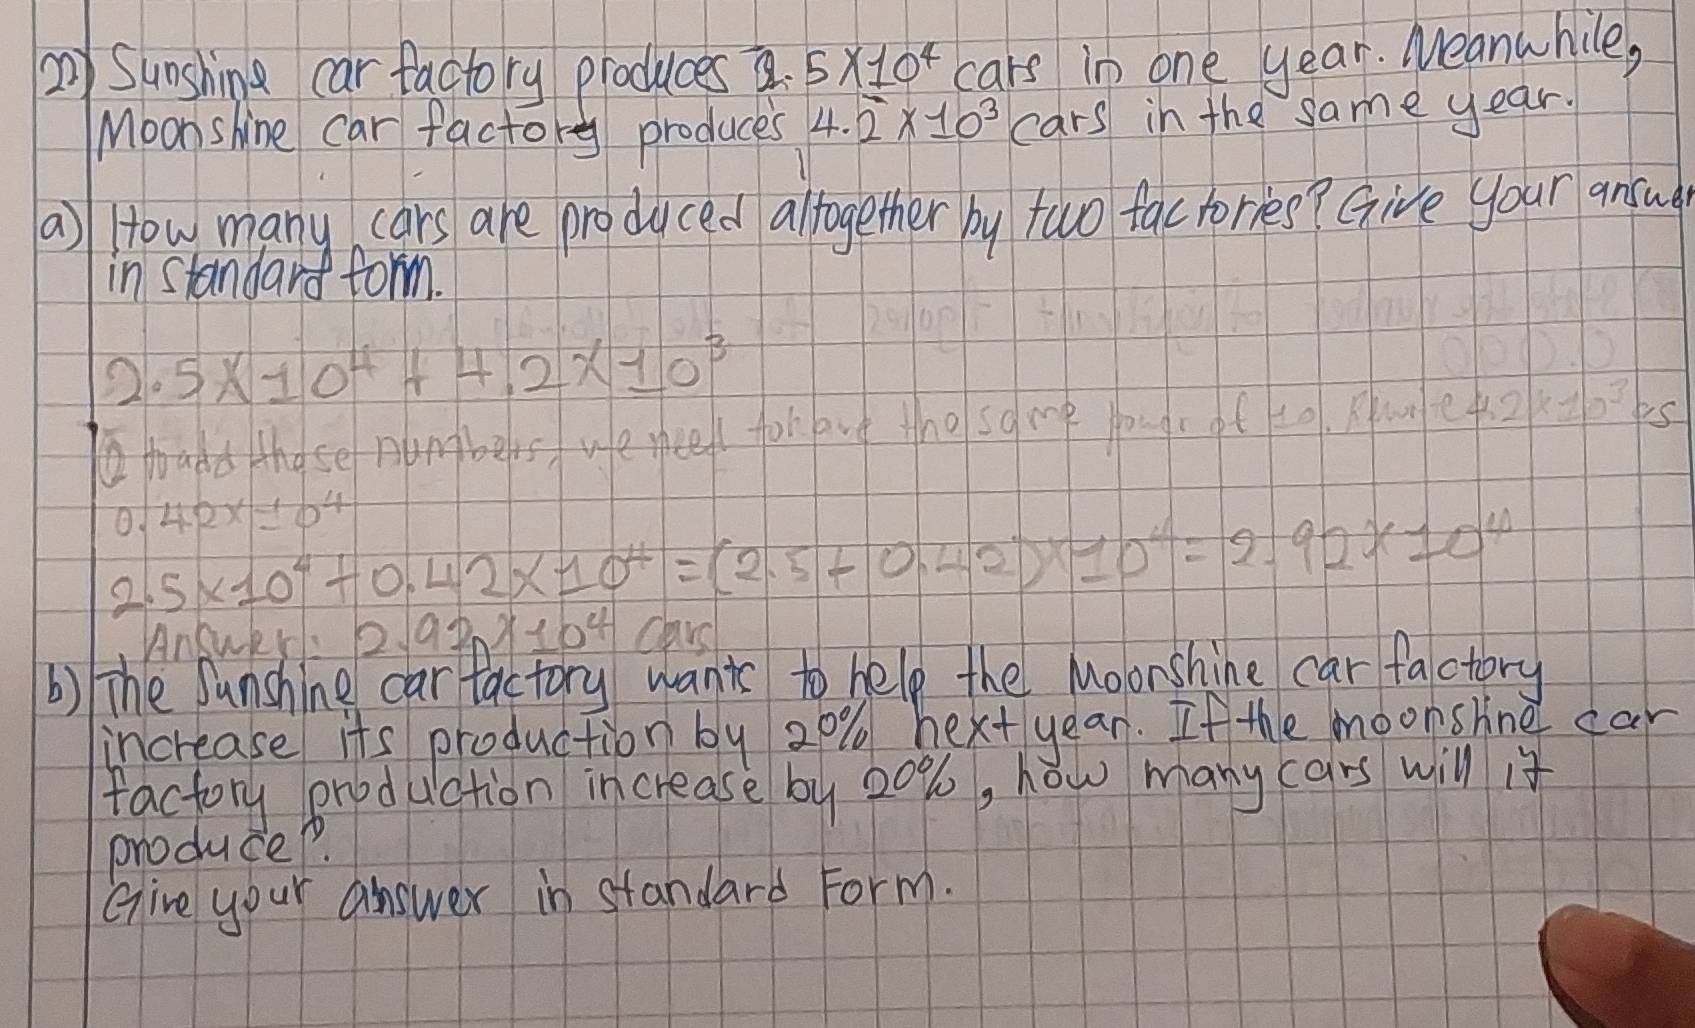 22) Sunshine car factory produces 2.5×10⁴ cars in one year. Meanwhile,
Moonshine car factory produces 4.2×10³ cars in the same year.
a) How many cars are produced altogether by two factories? Give your answer
in standard form.
2.5×10⁴ + 4.2×10³
to add these numbers, we need to have the same power of 10. Rewrite 4.2×10³ as
0.42×10⁴
2.5×10⁴ + 0.42×10⁴ = (2.5+0.42)×10⁴ = 2.92×10⁴
Answer: 2.92×10⁴ cars
b) The Sunshine car factory wants to help the Moonshine car factory
increase its production by 20% next year. If the moonshine car
factory production increase by 20%, how many cars will it
produce?
Give your answer in standard Form.